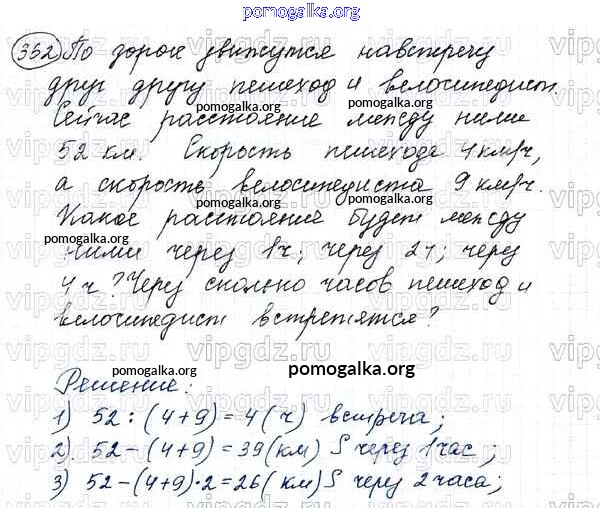 pomogalka.org
352 По дороге движутся навстречу
друг другу пешеход и велосипедист.
Сейчас расстояние между ними
52 км. Скорость пешехода 4 км/ч,
а скорость велосипедиста 9 км/ч.
Какое расстояние будет между
ними через 1ч; через 2ч; через
4ч? Через сколько часов пешеход и
велосипедист встретятся?
Решение:
1) 52 : (4+9) = 4 (ч) встреча;
2) 52 - (4+9) = 39 (км) S через 1 час;
3) 52 - (4+9)·2 = 26 (км) S через 2 часа;